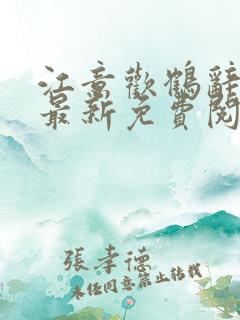 江童歡鶴辭
最新免費閱
張孝德
未經同意禁止轉載